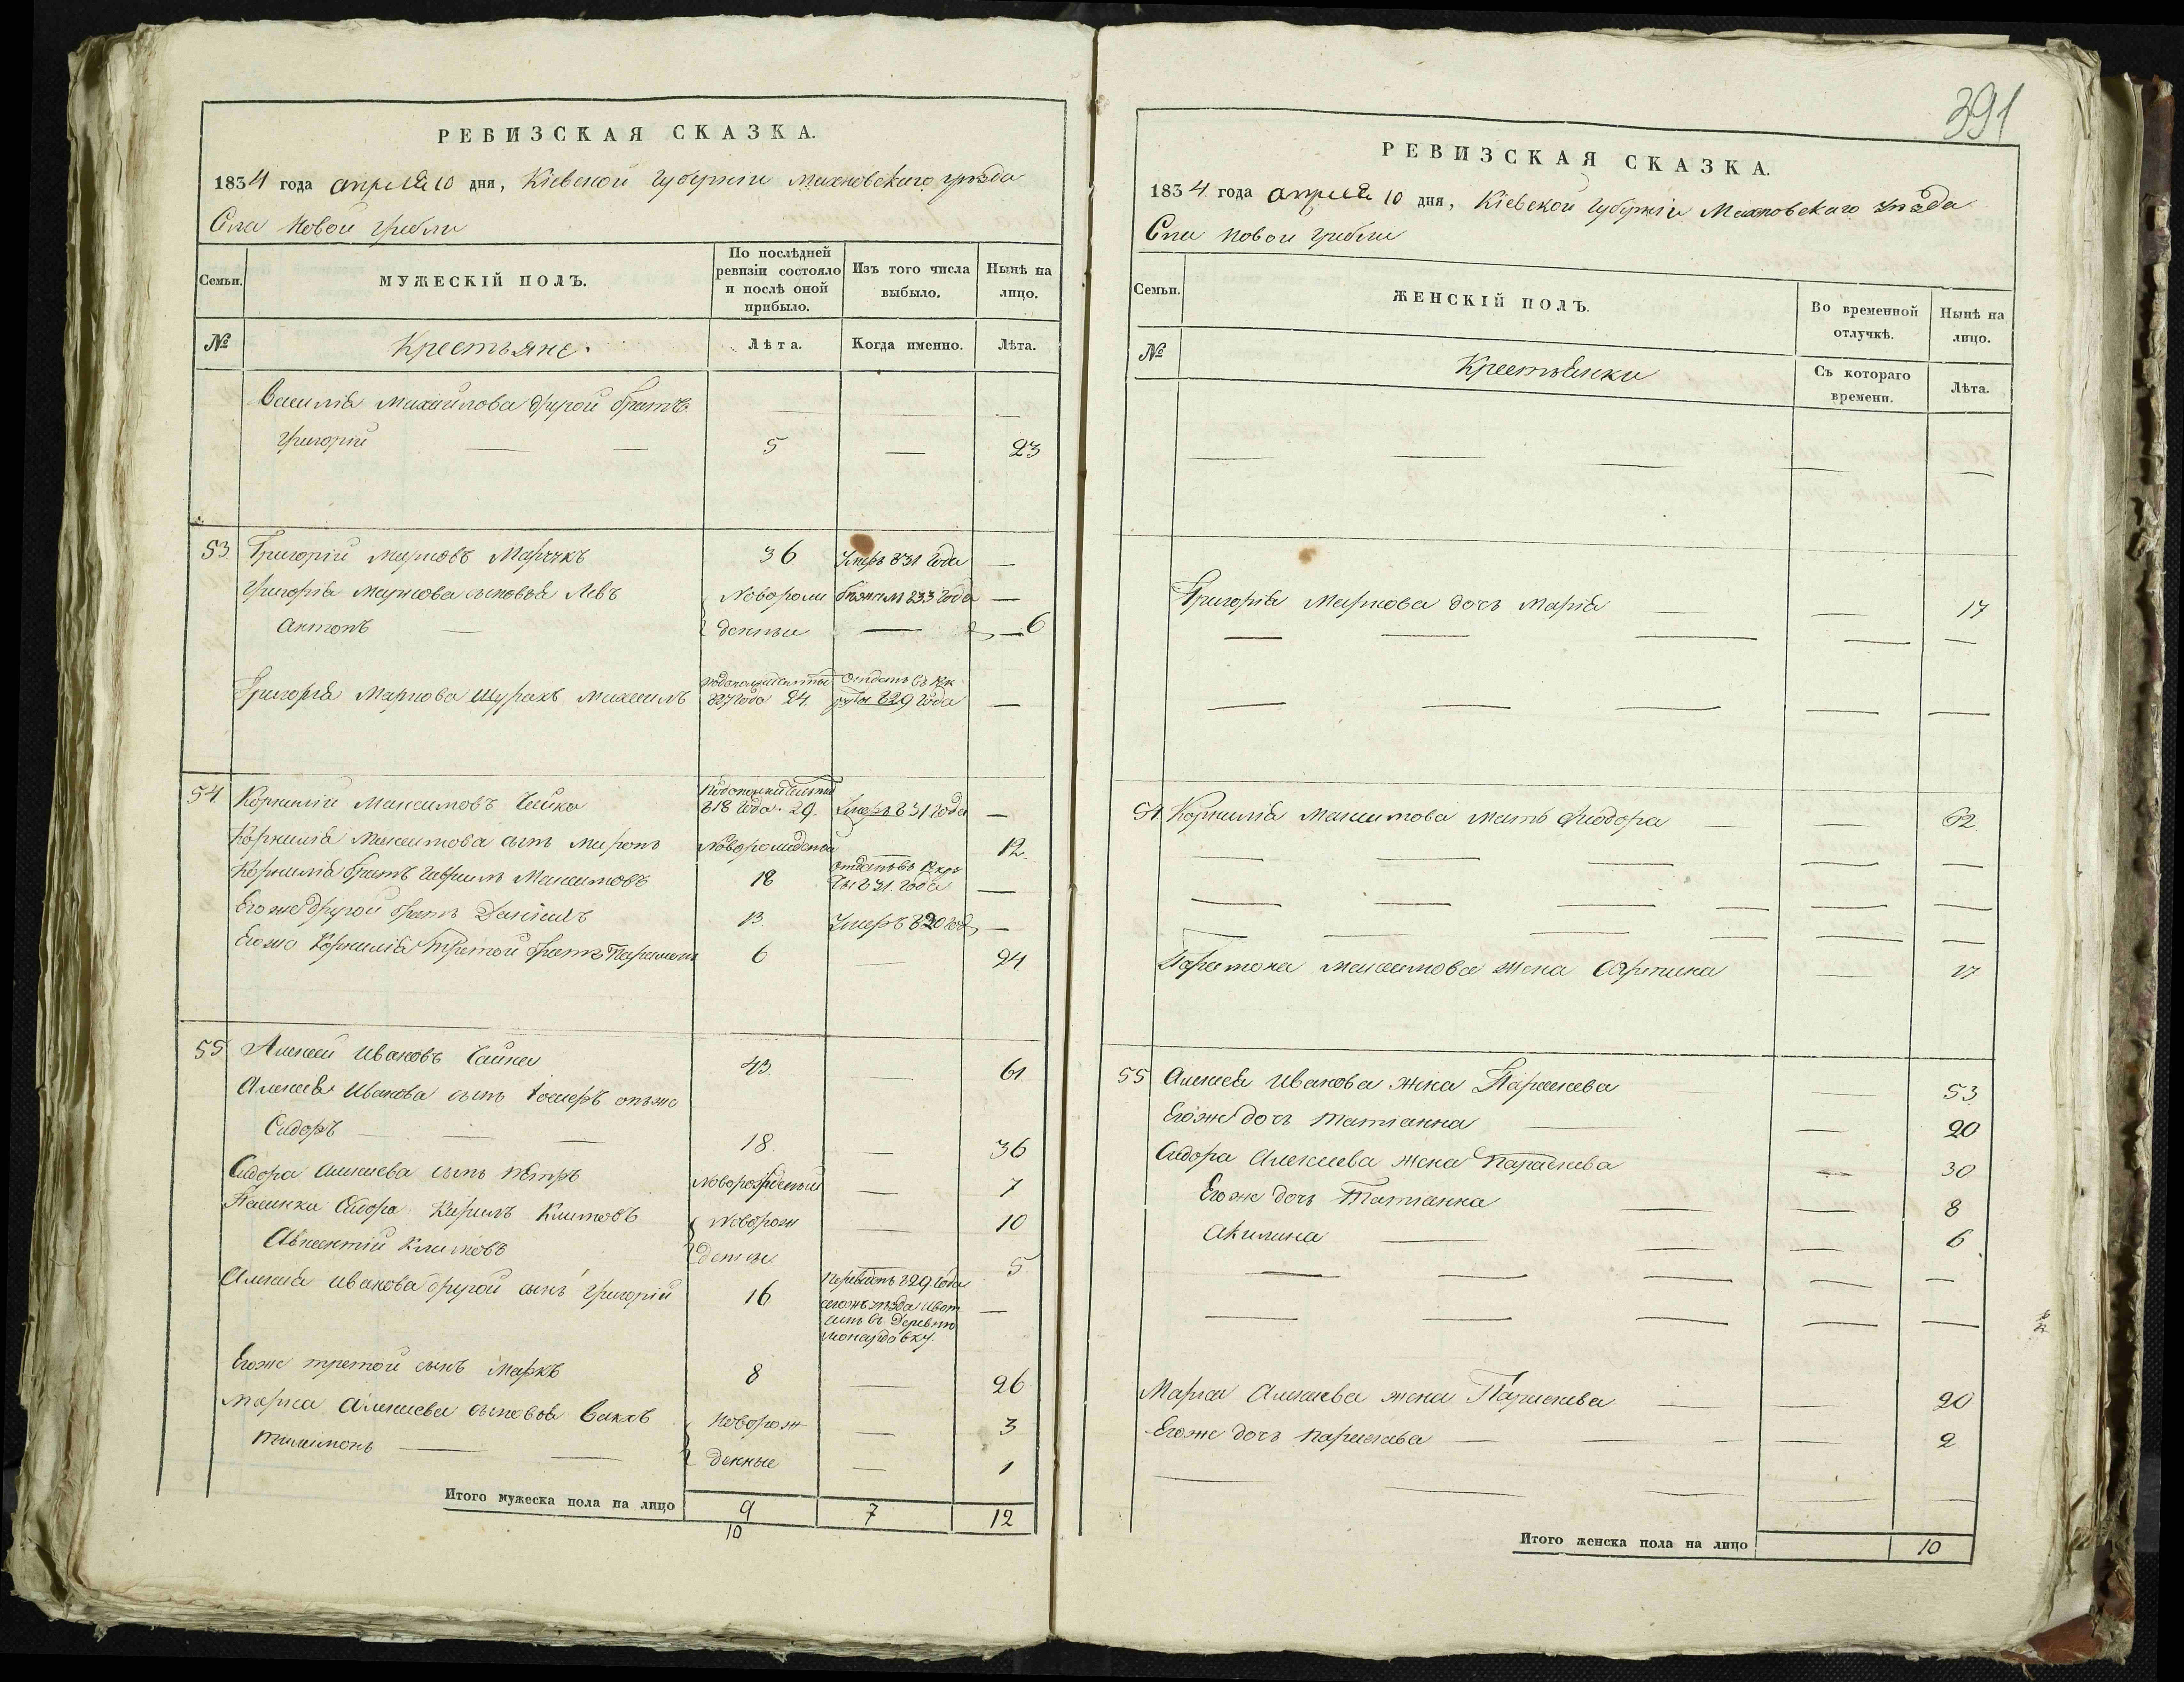 РЕВИЗСКАЯ СКАЗКА.
1834 года апреля 10 дня, Кіевской губерніи Махновскаго уѣзда
Села Новой Гребли
Семьи.
МУЖЕСКІЙ ПОЛЪ.
По послѣдней ревизіи состояло и послѣ оной прибыло.
Изъ того числа выбыло.
Нынѣ на лицо.
№
Крестьяне
Лѣта.
Когда именно.
Лѣта.
Василія Михайлова другой братъ
Григорій 5 23
53 Григорій Марковъ 36 Умеръ 831 года
Григорія Маркова сыновья Левъ Новорож бѣжал 833 года
Антонъ денные 6
Григорія Маркова Шуринъ Михаилъ 827 года 24 Отданъ въ рекруты 829 года
54 Корнилій Максимовъ Чайка 818 года 29. Умеръ 831 года
Корнилія Максимова сынъ Миронъ Новорожденой 12
Корнилія братъ Максимовъ 18 отданъ въ рекруты 831 года
Егоже другой братъ Даніилъ 13 Умеръ 820 года
Егоже Корнилія третой братъ Парамонъ 6 24
55 Алексей Ивановъ Чайка 43 61
Алексея Иванова сынъ онъже
Сидоръ 18 36
Сидора Алексеева сынъ Петръ Новорожденый 7
Пасинки Сидора Кирилъ Климовъ Новорож 10
Авксентій Климовъ денные 5
Алексея Иванова другой сынъ Григорій 16 829 года
въ деревню
Егоже третой сынъ Маркъ 8 26
Марка Алексеева сыновья Вакхъ Новорож 3
денные 1
Итого мужеска пола на лицо 9 7 12
10
391
РЕВИЗСКАЯ СКАЗКА.
1834 года апреля 10 дня, Кіевской губерніи Махновскаго уѣзда
Села Новой Гребли
Семьи.
ЖЕНСКІЙ ПОЛЪ.
Во временной отлучкѣ.
Нынѣ на лицо.
№
Крестьянки
Съ котораго времени.
Лѣта.
Григорія Маркова дочь Марія 17
54 Корнилія Максимова мать Феодора 62
Парамона Максимова жена 17
55 Алексея Иванова жена Параскева 53
Егоже дочь Татіанна 20
Сидора Алексеева жена Параскева 30
Егоже дочь Татіанна 8
Акилина 6
Марка Алексеева жена Параскева 20
Егоже дочь Параскева 2
Итого женска пола на лицо 10